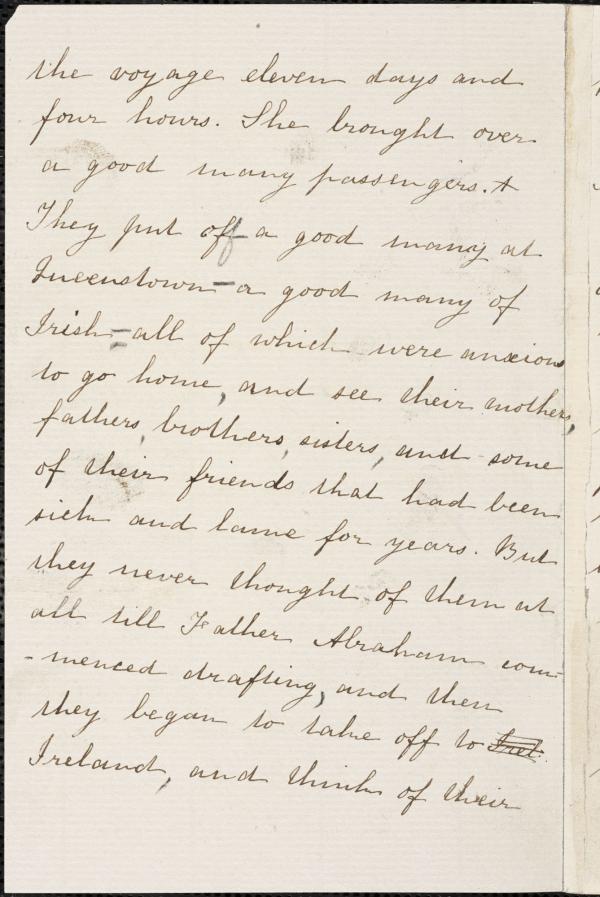 the voyage eleven days and
four hours. She brought over
a good many passengers. +
They put off a good many at
Queenstown - a good many of
Irish - all of which were anxious
to go home, and see their mothers,
fathers, brothers, sisters, and some
of their friends that had been
sick and lame for years. But
they never thought of them at
all till Father Abraham com-
-menced drafting, and then
they began to take off to
Ireland, and think of their